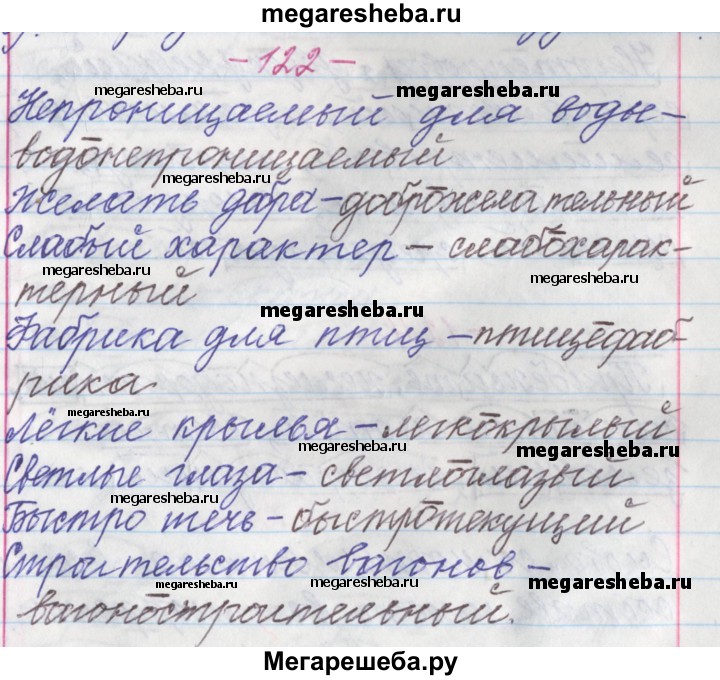 megaresheba.ru
- 122 -
megaresheba.ru megaresheba.ru
Непроницаемый для воды -
водонепроницаемый
megaresheba.ru
Желать добра - доброжелательный
Слабый характер - слабохарак-
megaresheba.ru megaresheba.ru
терный
megaresheba.ru
Фабрика для птиц - птицефаб-
рика
megaresheba.ru
Лёгкие крылья - легкокрылый
megaresheba.ru megaresheba.ru
Светлые глаза - светлоглазый
megaresheba.ru
Быстро течь - быстротекущий
Строительство вагонов -
megaresheba.ru megaresheba.ru megaresheba.ru
вагоностроительный.
Мегарешеба.ру